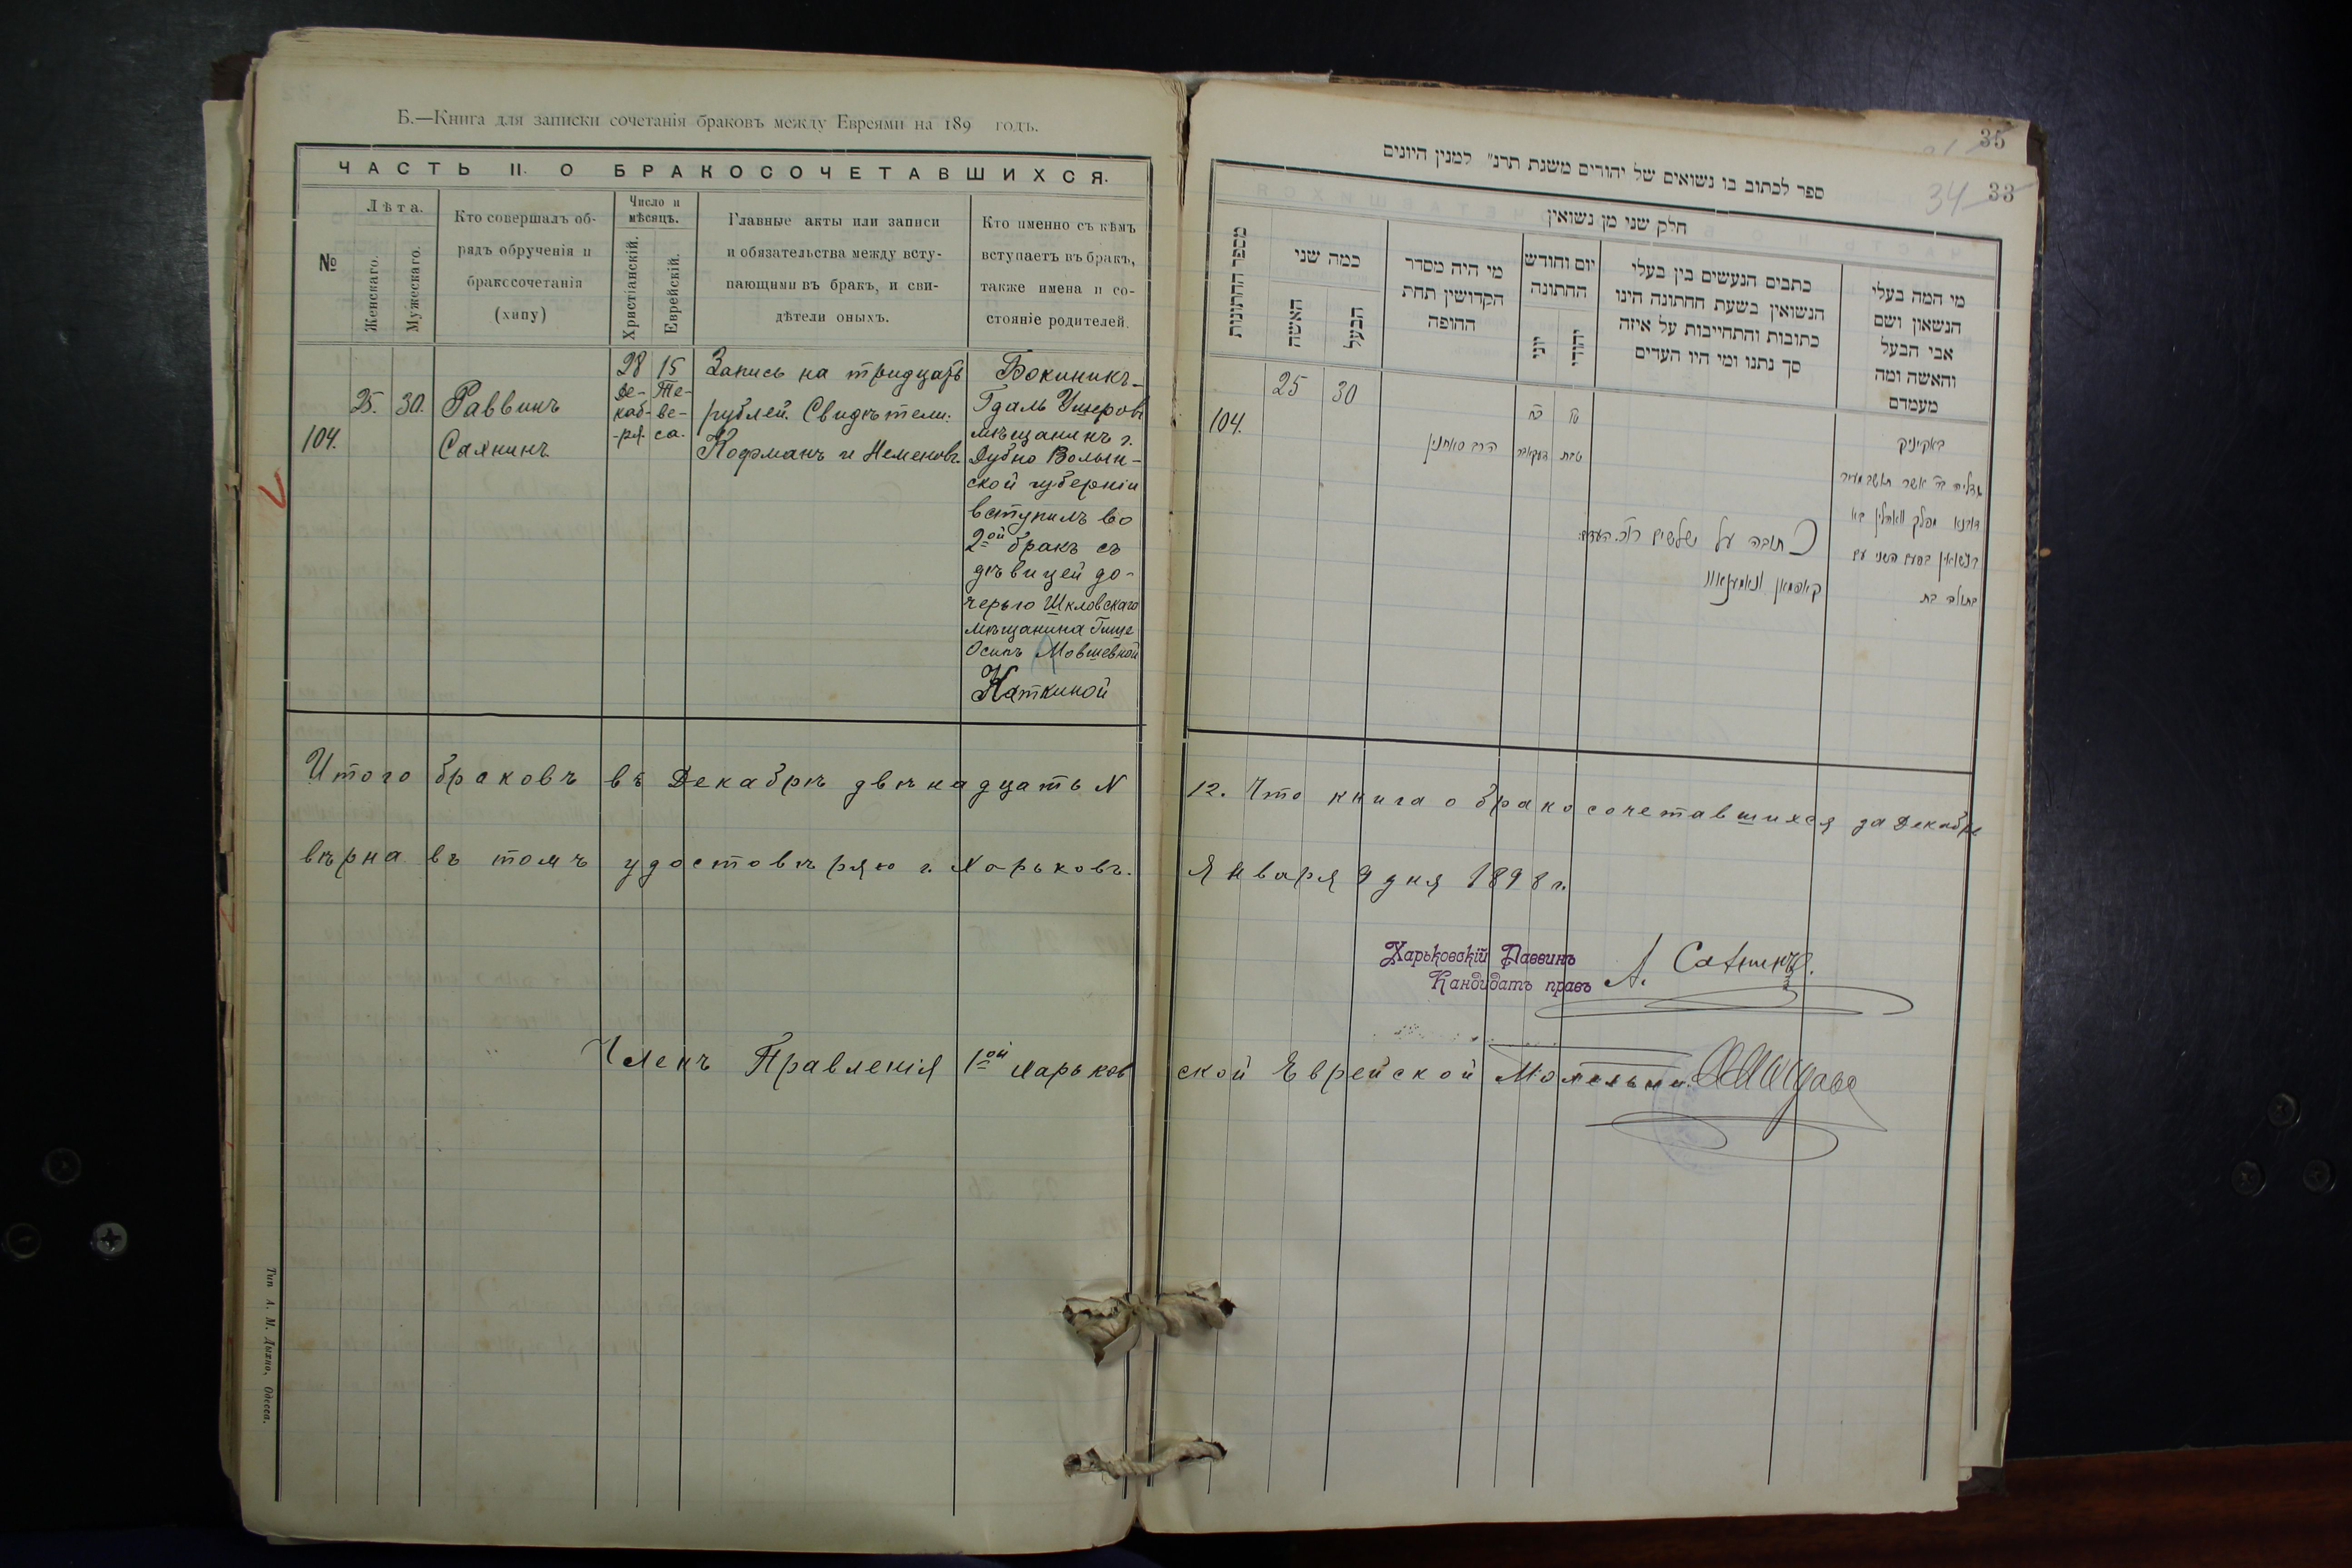 Б.—Книга для записки сочетанія браковъ между Евреями на 189 годъ.
ЧАСТЬ II. О БРАКОСОЧЕТАВШИХСЯ.
№
Лѣта.
Женскаго.
Мужескаго.
Кто совершалъ об-
рядъ обрученія и
бракосочетанія
(хипу)
Число и
мѣсяцъ.
Христіанскій.
Еврейскій.
Главные акты или записи
и обязательства между всту-
пающими въ бракъ, и сви-
дѣтели оныхъ.
Кто именно съ кѣмъ
вступаетъ въ бракъ,
также имена и со-
стояніе родителей.
104.
25.
30.
Раввинъ
Саянинъ
28
Де-
каб-
-ря.
15
Те-
ве-
са.
Запись на тридцать
рублей. Свидѣтели:
Кофманъ и Неменовъ.
Бокиникъ
Гдаль Ушеровъ
мѣщанинъ г.
Дубно Волын-
ской губерніи
вступилъ во
2ой бракъ съ
дѣвицей до-
черью Шкловскаго
мѣщанина
Осипъ Мовшевной
Каткиной
Итого браковъ въ Декабрѣ двѣнадцать N
вѣрна въ томъ удостовѣряю г. Харьковъ.
Членъ Правленія 1ой Харьков
Тип. А. М. Дыхно, Одесса.
35
34
33
ספר לכתוב בו נשואים של יהודים משנת תרנ״ למנין היונים
חלק שני מן נשואין
מספר החתונות
כמה שני
האשה
הבעל
מי היה מסדר
הקדושין תחת
החופה
יום וחודש
החתונה
יוני
יהודי
כתבים הנעשים בין בעלי
הנשואין בשעת החתונה הינו
כתובות והתחייבות על איזה
סך נתנו ומי היו העדים
מי המה בעלי
הנשאון ושם
אבי הבעל
והאשה ומה
מעמדם
104.
25
30
הרב סאחנין
כח
דעקאבר
טו
טבת
כתובה על שלשים רו״כ העדים:
קאפמאן
באקיניק
12. Что книга о бракосочетавшихся за Декабрь
Января 9 дня 1898 г.
Харьковскій Раввинъ
Кандидатъ правъ
А.
ской Еврейской Молельни.